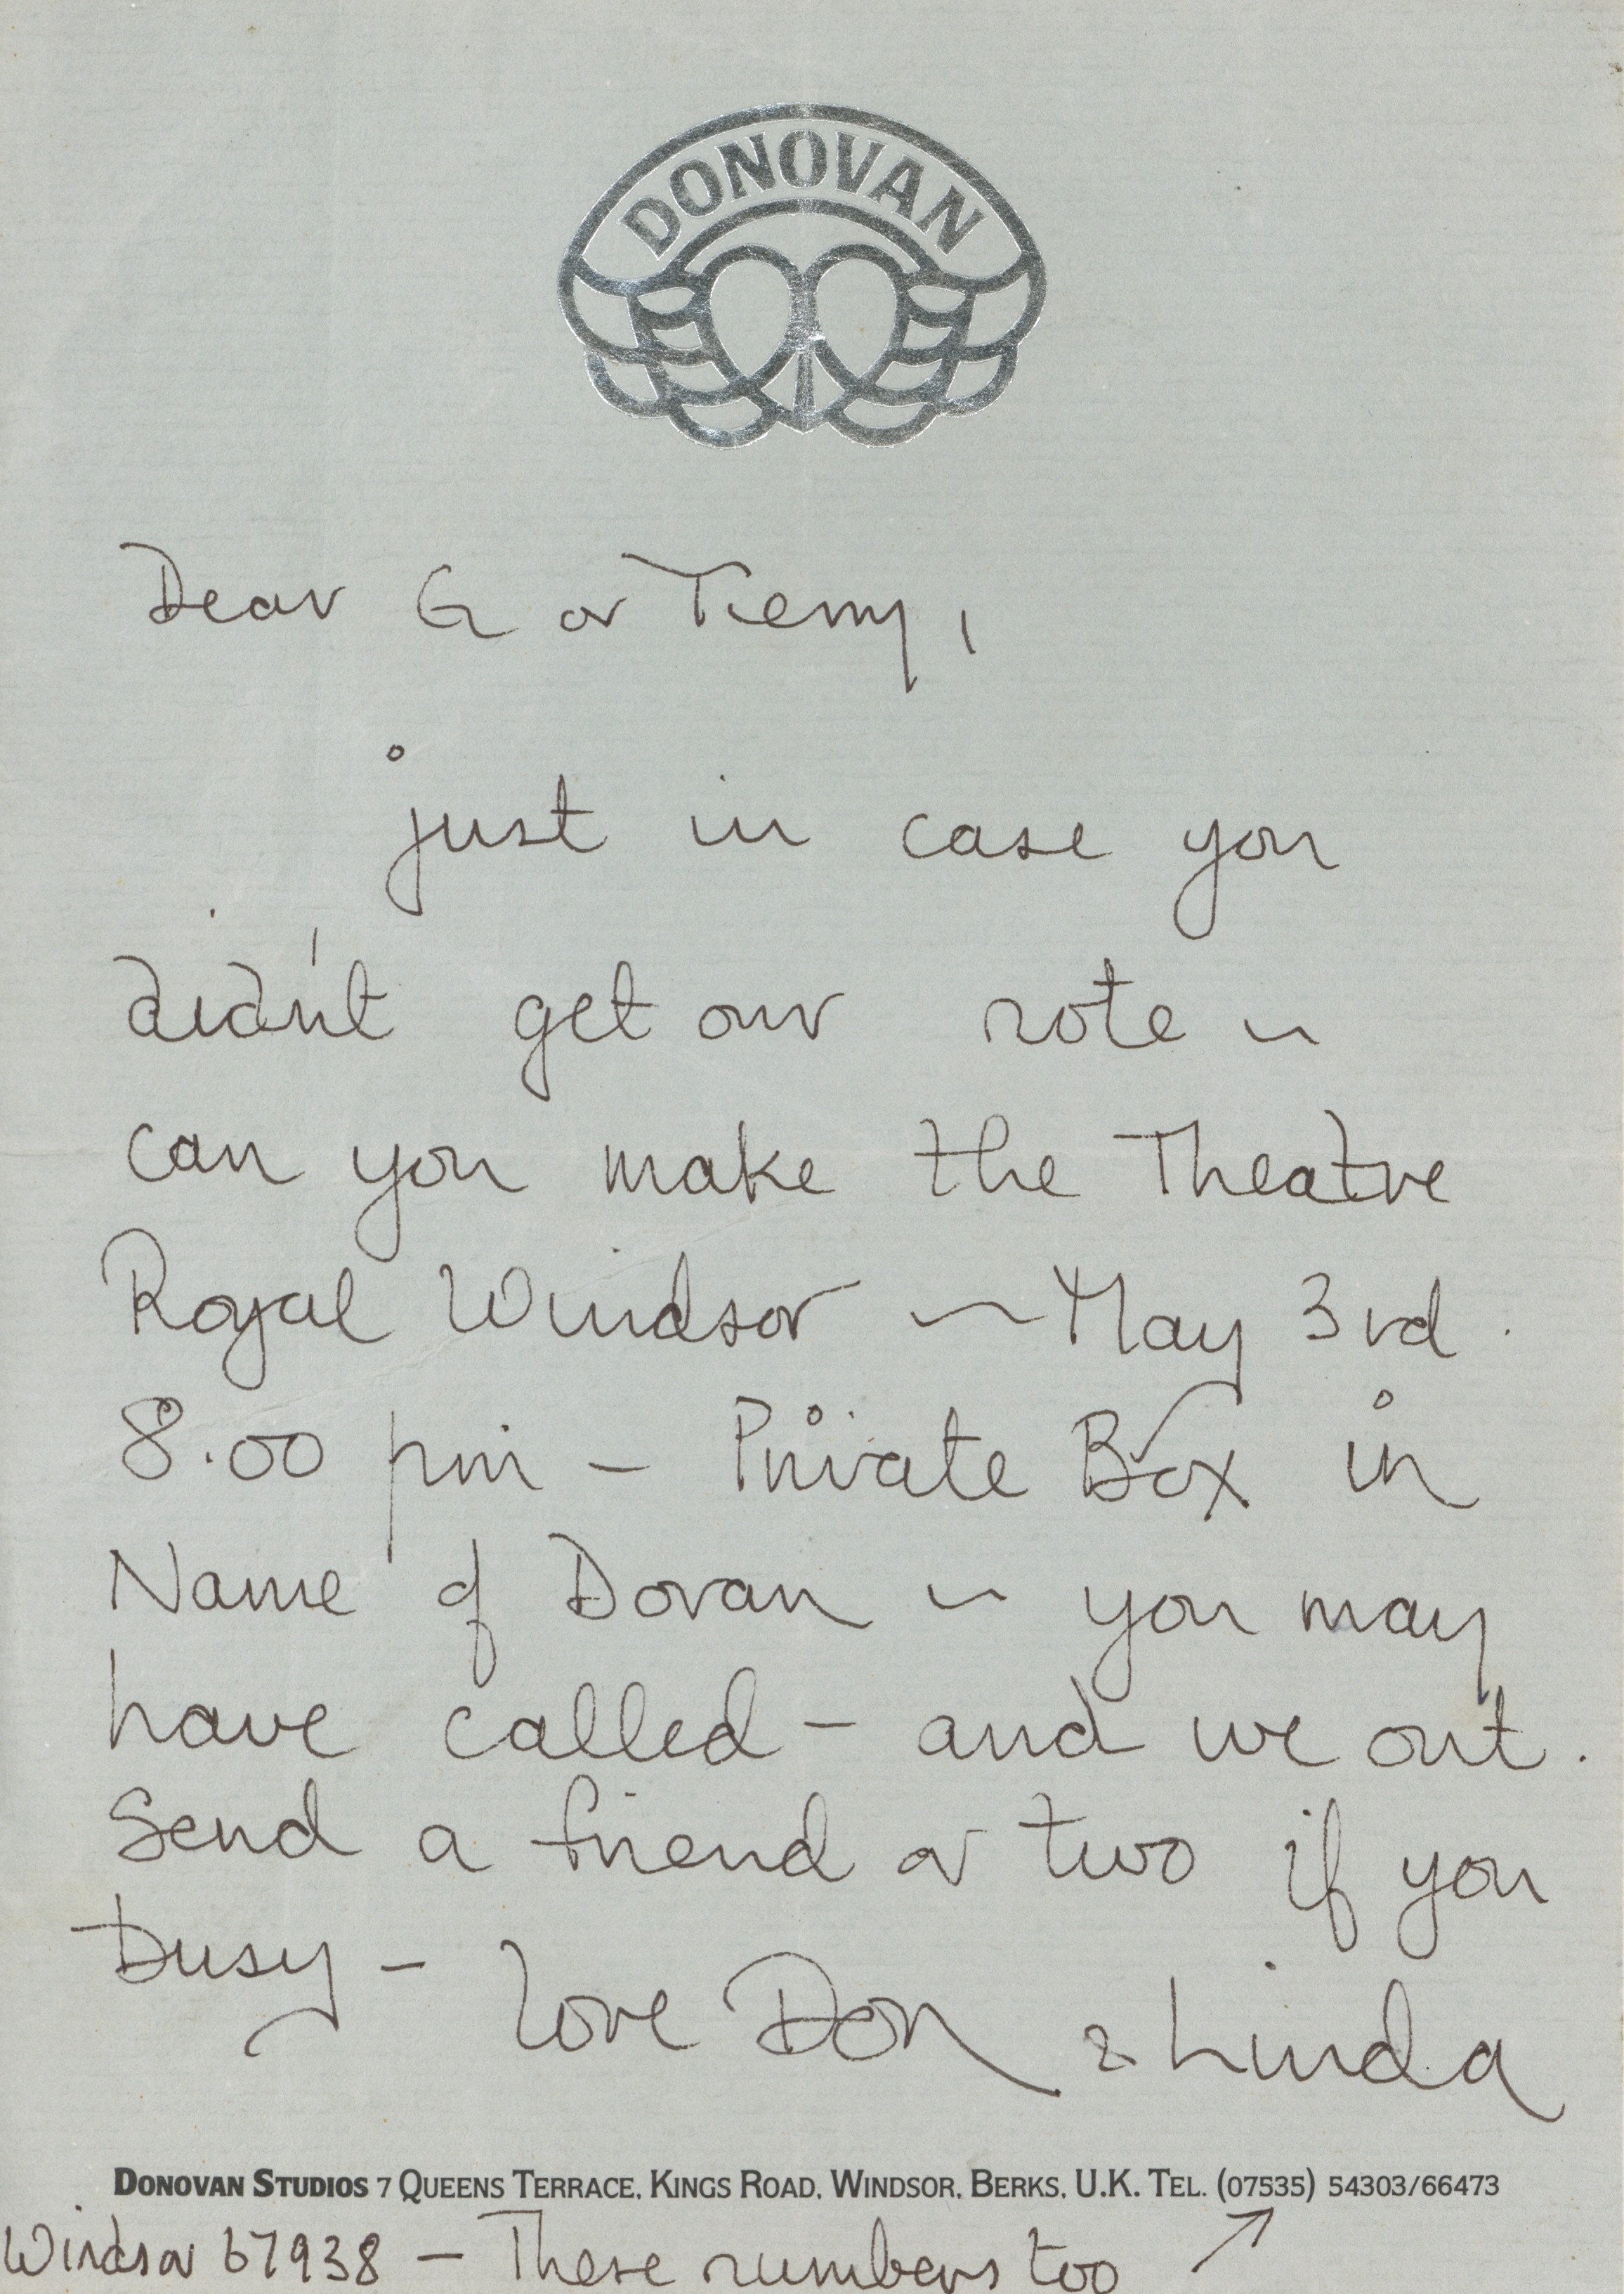 DONOVAN
Dear G or Terry,
just in case you
didn't get our note ~
can you make the Theatre
Royal Windsor ~ May 3rd.
8.00 pm - Private Box in
Name of Dovan ~ you may
have called - and we out.
Send a friend or two if you
busy - love Don & Linda
DONOVAN STUDIOS 7 QUEENS TERRACE, KINGS ROAD, WINDSOR, BERKS, U.K. TEL. (07535) 54303/66473
Windsor 67938 - These numbers too ↗